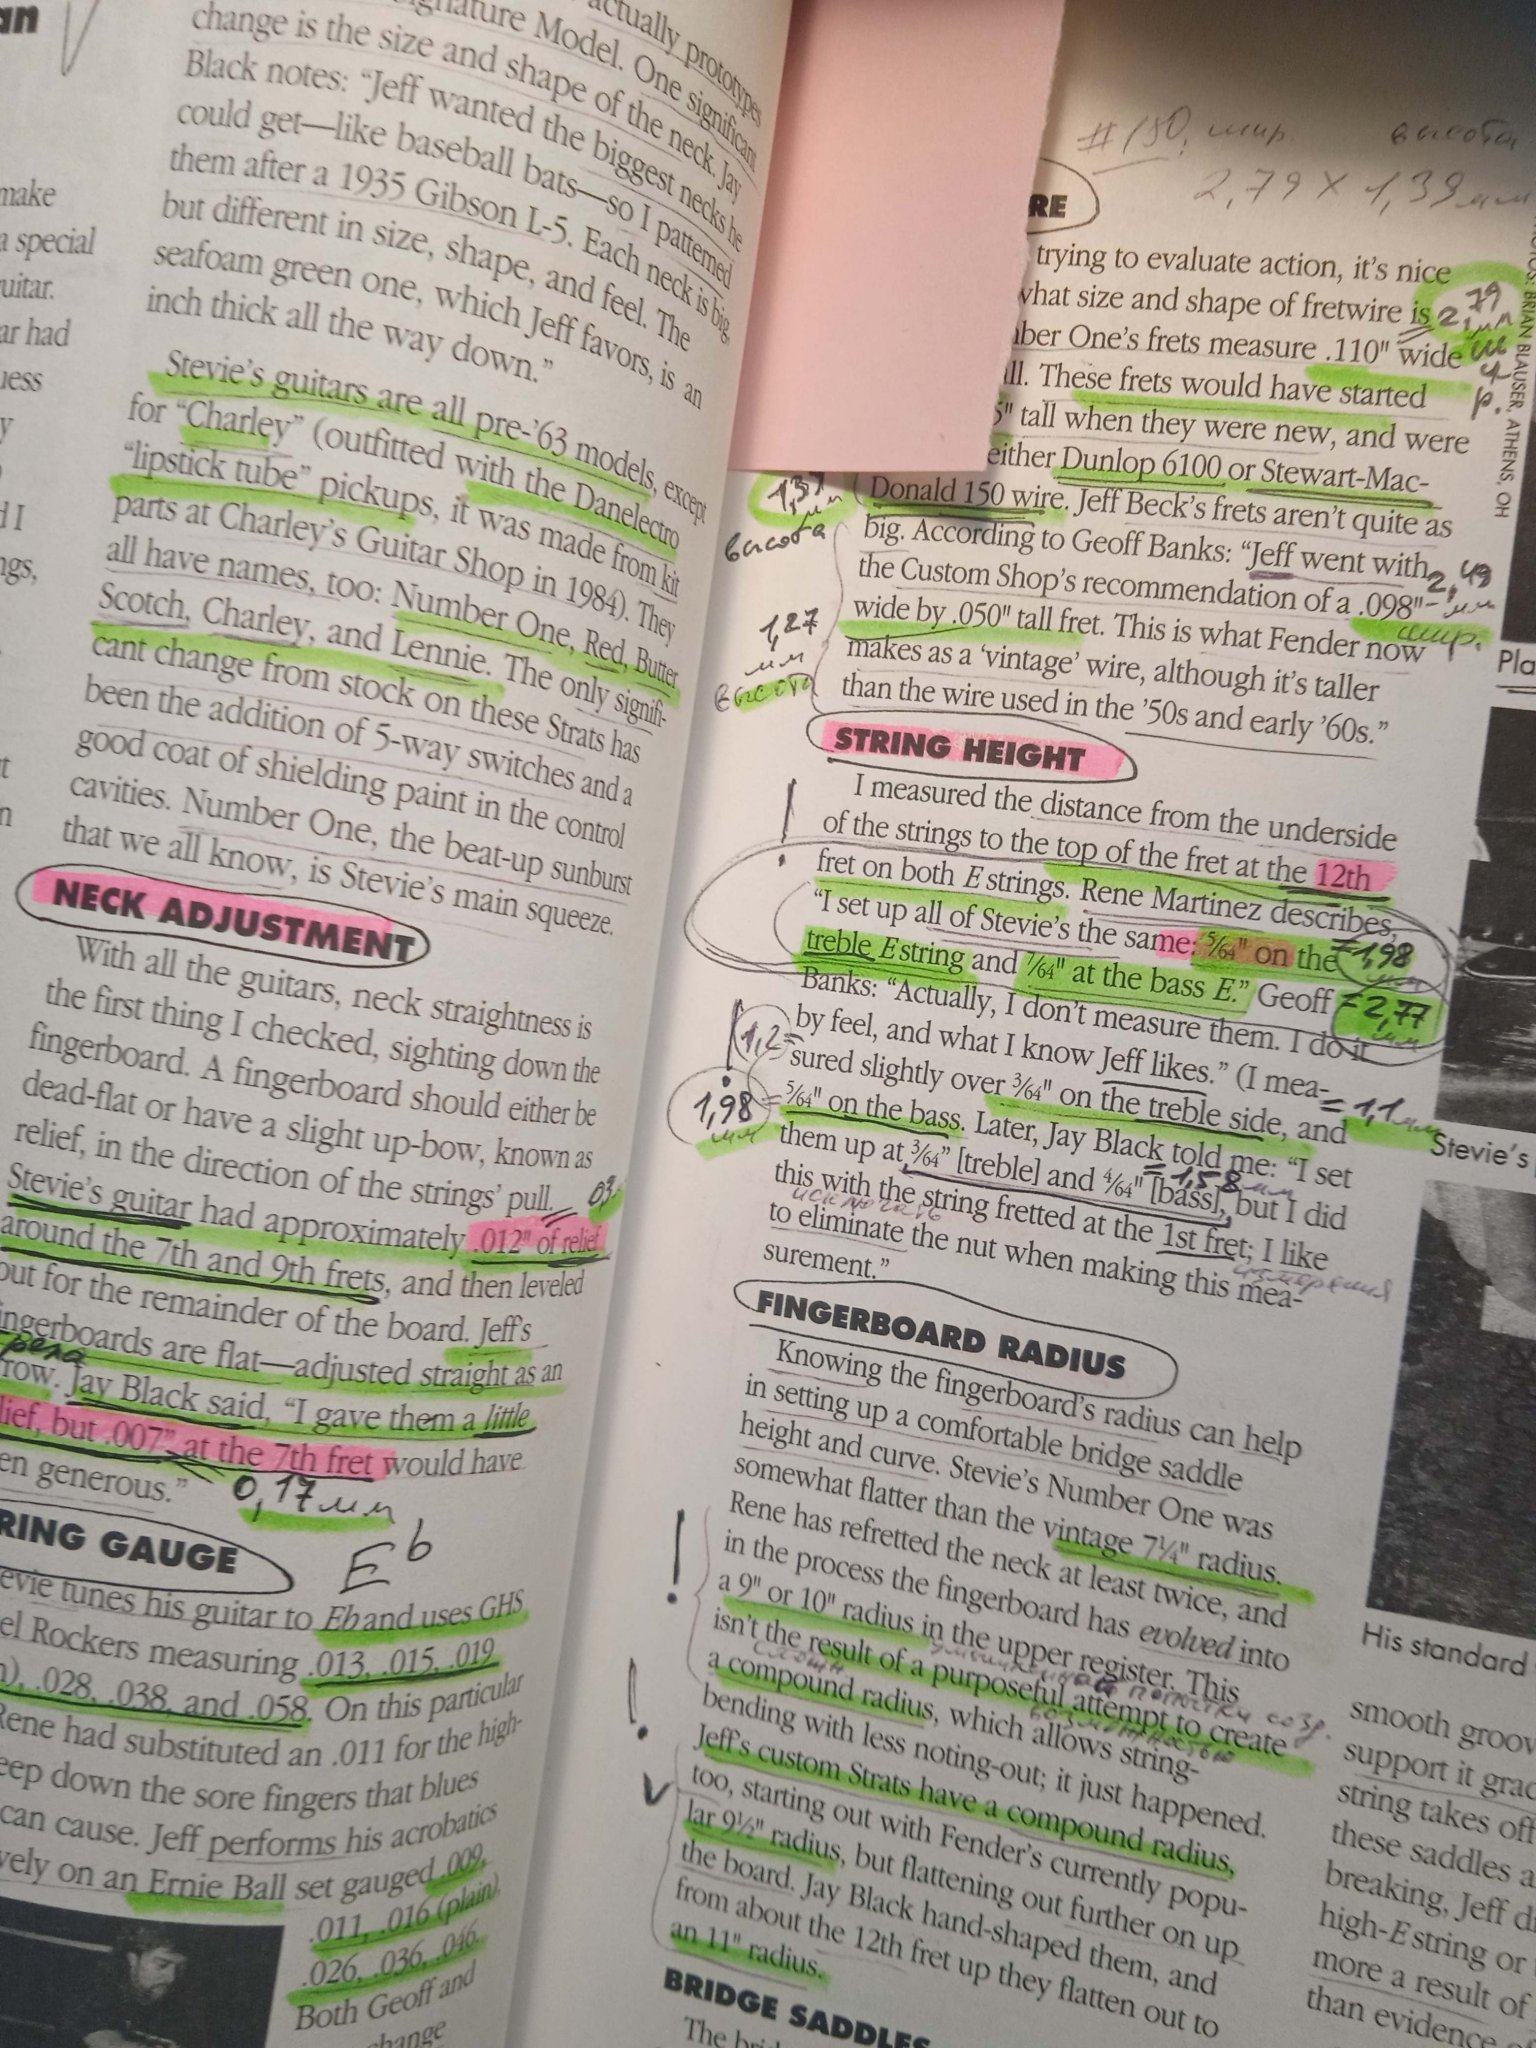 an
make
a special
uitar.
ar had
uess
actually prototypes
gnature Model. One significant
change is the size and shape of the neck. Jay
Black notes: “Jeff wanted the biggest necks he
could get—like baseball bats—so I patterned
them after a 1935 Gibson L-5. Each neck is big,
but different in size, shape, and feel. The
seafoam green one, which Jeff favors, is an
inch thick all the way down.”
Stevie’s guitars are all pre-’63 models, except
for “Charley” (outfitted with the Danelectro
“lipstick tube” pickups, it was made from kit
parts at Charley’s Guitar Shop in 1984). They
all have names, too: Number One, Red, Butter
Scotch, Charley, and Lennie. The only signifi-
cant change from stock on these Strats has
been the addition of 5-way switches and a
good coat of shielding paint in the control
cavities. Number One, the beat-up sunburst
that we all know, is Stevie’s main squeeze.
NECK ADJUSTMENT
With all the guitars, neck straightness is
the first thing I checked, sighting down the
fingerboard. A fingerboard should either be
dead-flat or have a slight up-bow, known as
relief, in the direction of the strings’ pull.
Stevie’s guitar had approximately .012" of relief
around the 7th and 9th frets, and then leveled
out for the remainder of the board. Jeff’s
ingerboards are flat—adjusted straight as an
row. Jay Black said, “I gave them a little
lief, but .007” at the 7th fret would have
en generous.”
0,17 мм
RING GAUGE
Eb
evie tunes his guitar to Eb and uses GHS
el Rockers measuring .013, .015, .019
), .028, .038, and .058. On this particular
Rene had substituted an .011 for the high-
eep down the sore fingers that blues
can cause. Jeff performs his acrobatics
vely on an Ernie Ball set gauged .009,
.011, .016 (plain),
.026, .036, .046.
Both Geoff and
change
#150, шир. высота
2,79 x 1,39 мм
RE
trying to evaluate action, it’s nice
what size and shape of fretwire is
2,79 мм
ber One’s frets measure .110" wide
ll. These frets would have started
5" tall when they were new, and were
either Dunlop 6100 or Stewart-Mac-
Donald 150 wire. Jeff Beck’s frets aren’t quite as
big. According to Geoff Banks: “Jeff went with
the Custom Shop’s recommendation of a .098"-
wide by .050" tall fret. This is what Fender now
makes as a ‘vintage’ wire, although it’s taller
than the wire used in the ’50s and early ’60s.”
высота
1,27
мм
высота
2,49
мм
шир.
STRING HEIGHT
I measured the distance from the underside
of the strings to the top of the fret at the 12th
fret on both E strings. Rene Martinez describes,
“I set up all of Stevie’s the same: 5/64" on the
=1,98 мм
treble E string and 7/64" at the bass E.” Geoff
=2,77 мм
Banks: “Actually, I don’t measure them. I do it
by feel, and what I know Jeff likes.” (I mea-
1,2=
sured slightly over 3/64" on the treble side, and
=1,1 мм
1,98 мм =
5/64" on the bass. Later, Jay Black told me: “I set
them up at 3/64” [treble] and 4/64" [bass], but I did
=1,58 мм
this with the string fretted at the 1st fret; I like
to eliminate the nut when making this mea-
surement.”
измерения
FINGERBOARD RADIUS
Knowing the fingerboard’s radius can help
in setting up a comfortable bridge saddle
height and curve. Stevie’s Number One was
somewhat flatter than the vintage 7¼" radius.
Rene has refretted the neck at least twice, and
in the process the fingerboard has evolved into
a 9" or 10" radius in the upper register. This
isn’t the result of a purposeful attempt to create
a compound radius, which allows string-
bending with less noting-out; it just happened.
Jeff’s custom Strats have a compound radius,
too, starting out with Fender’s currently popu-
lar 9½" radius, but flattening out further on up
the board. Jay Black hand-shaped them, and
from about the 12th fret up they flatten out to
an 11" radius.
BRIDGE SADDLES
The bri
BRIAN BLAUSER, ATHENS, OH
Pla
Stevie’s
His standard
smooth groov
support it grac
string takes off
these saddles a
breaking, Jeff di
high-E string or
more a result of
than evidence of